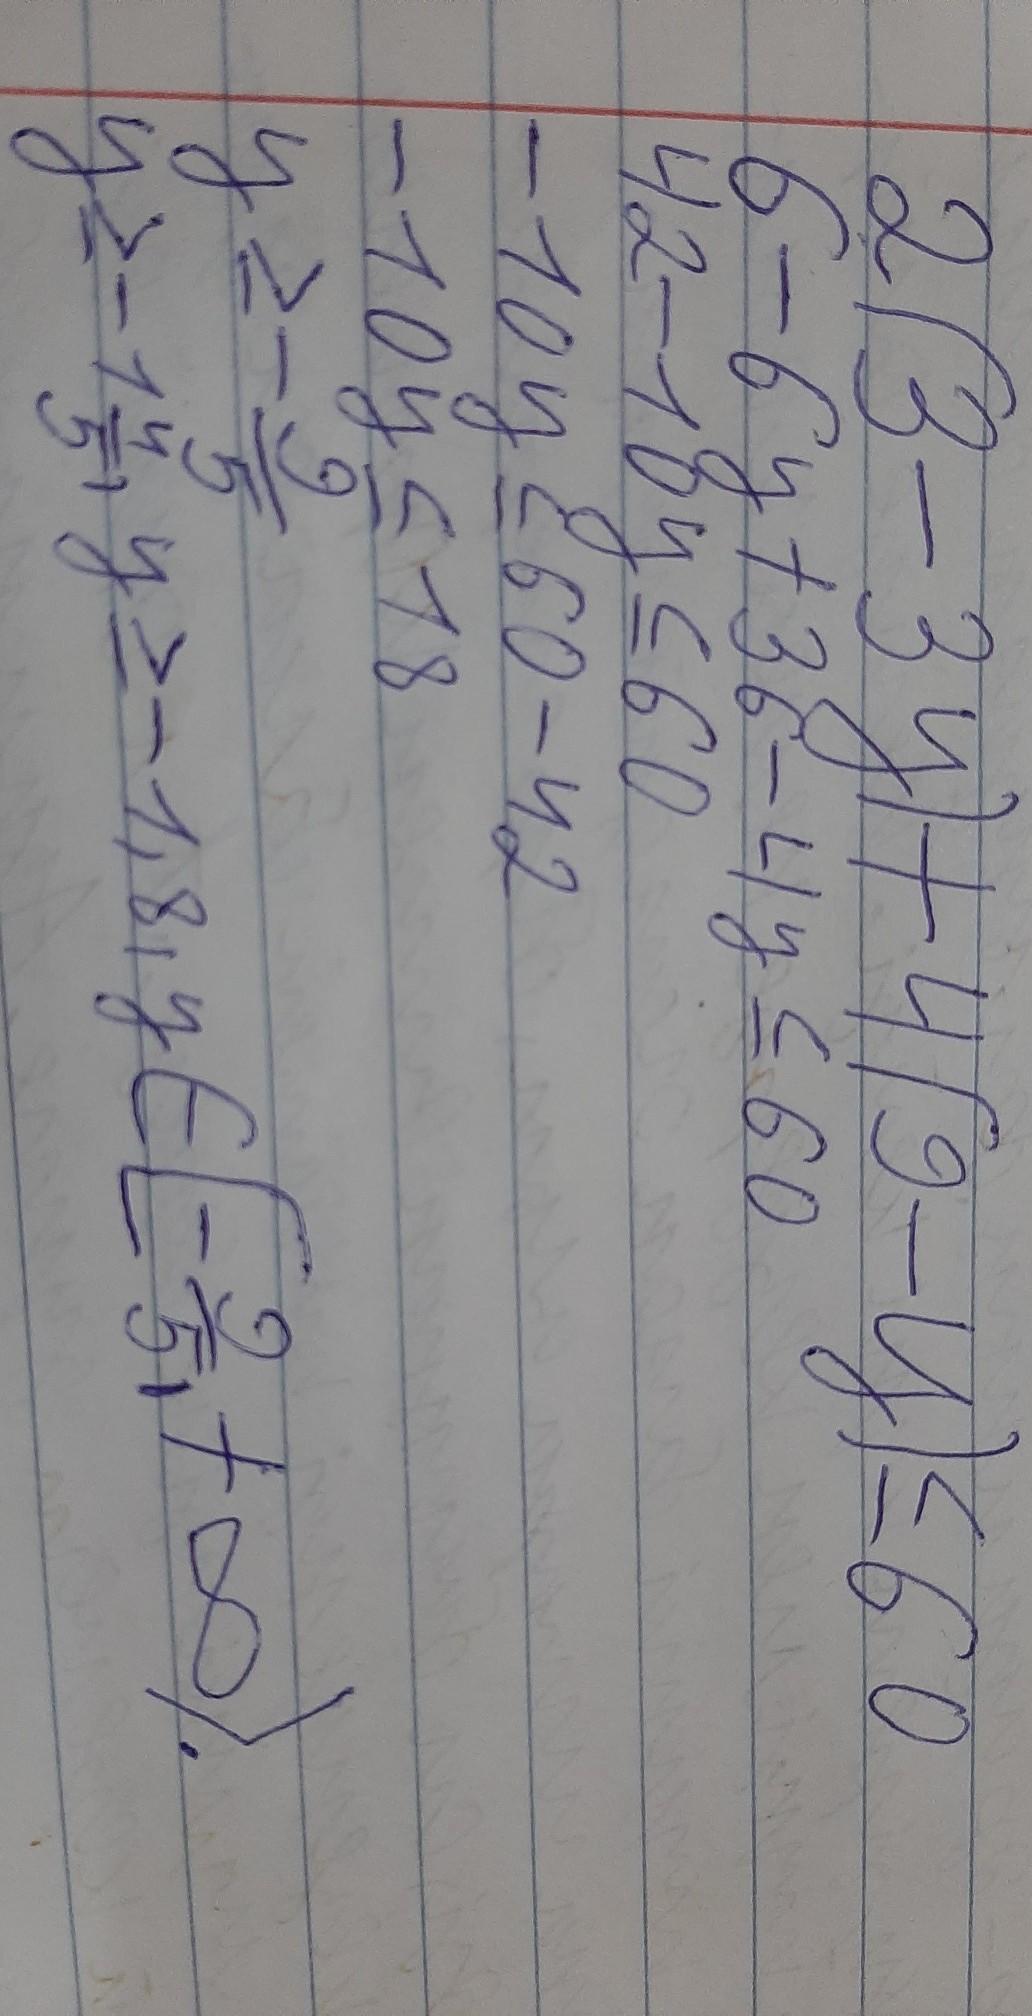 2(3-3y)+4(9-y)≤60
6-6y+36-4y≤60
42-10y≤60
-10y≤60-42
-10y≤18
y≥-9/5
y≥-1 4/5, y≥-1,8, y∈[-9/5,+∞).